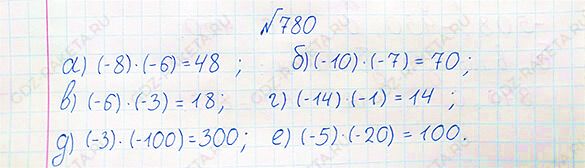 №780
а) (-8)·(-6)=48 ; б) (-10)·(-7)=70;
в) (-6)·(-3)=18; г) (-14)·(-1)=14 ;
д) (-3)·(-100)=300; е) (-5)·(-20)=100.